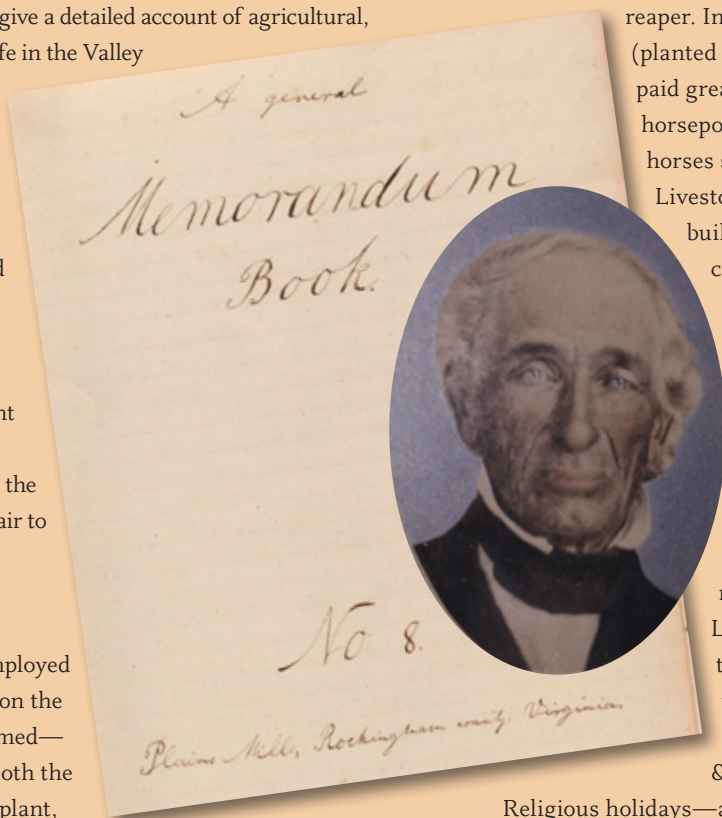 give a detailed account of agricultural,
fe in the Valley
d
nt
the
air to
mployed
on the
med—
oth the
plant,
A general
Memorandum
Book.
No 8.
Plains Mill, Rockingham county, Virginia.
reaper. In
(planted
paid grea
horsepo
horses s
Livesto
buil
c
r
L
t
&
Religious holidays—a